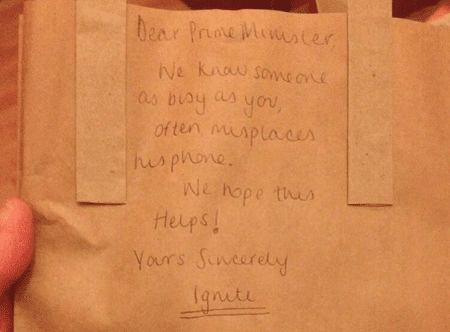 Dear Prime Minister,
We know someone
as busy as you,
often misplaces
his phone.
We hope this
Helps!
Yours Sincerely
Ignite